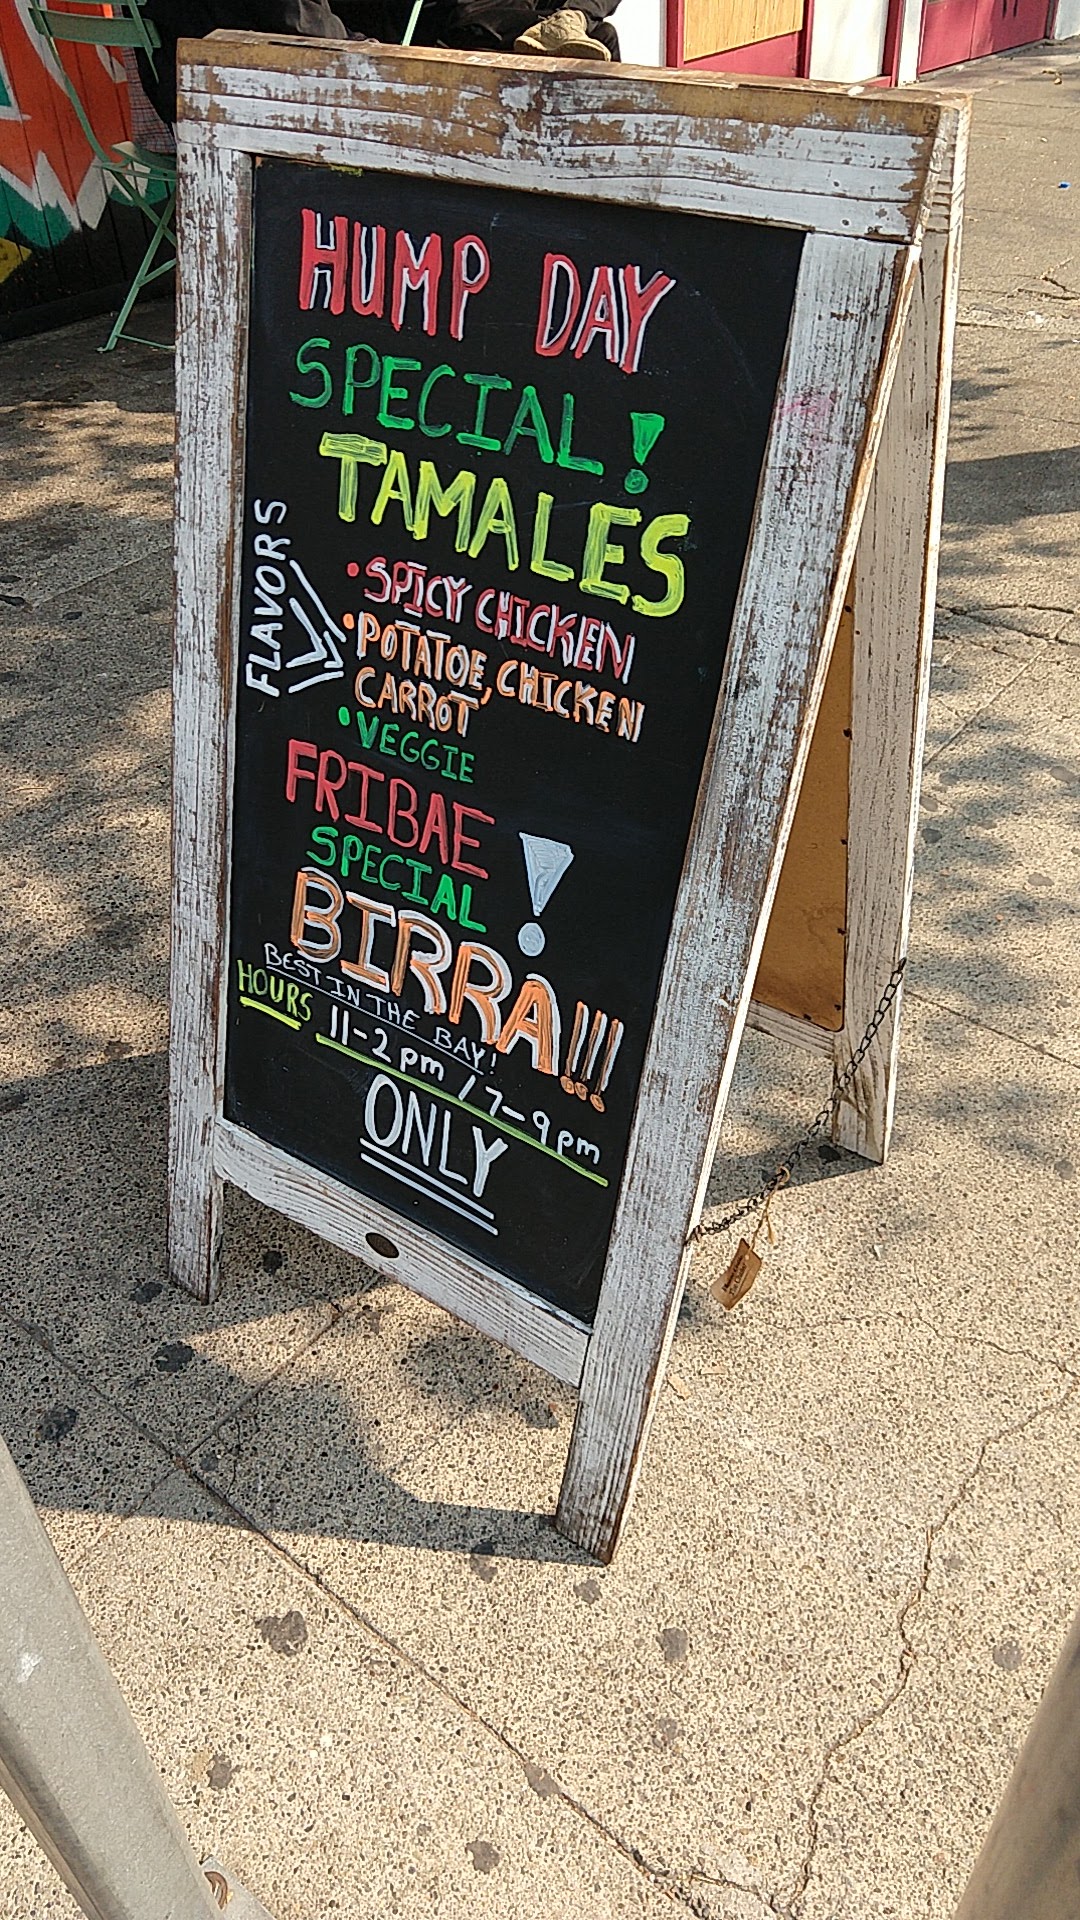 HUMP DAY
SPECIAL!
TAMALES
FLAVORS
• SPICY CHICKEN
• POTATOE, CHICKEN
CARROT
• VEGGIE
FRIBAE
SPECIAL!
BIRRA!!!
BEST IN THE BAY!
HOURS 11-2 pm / 7-9 pm
ONLY